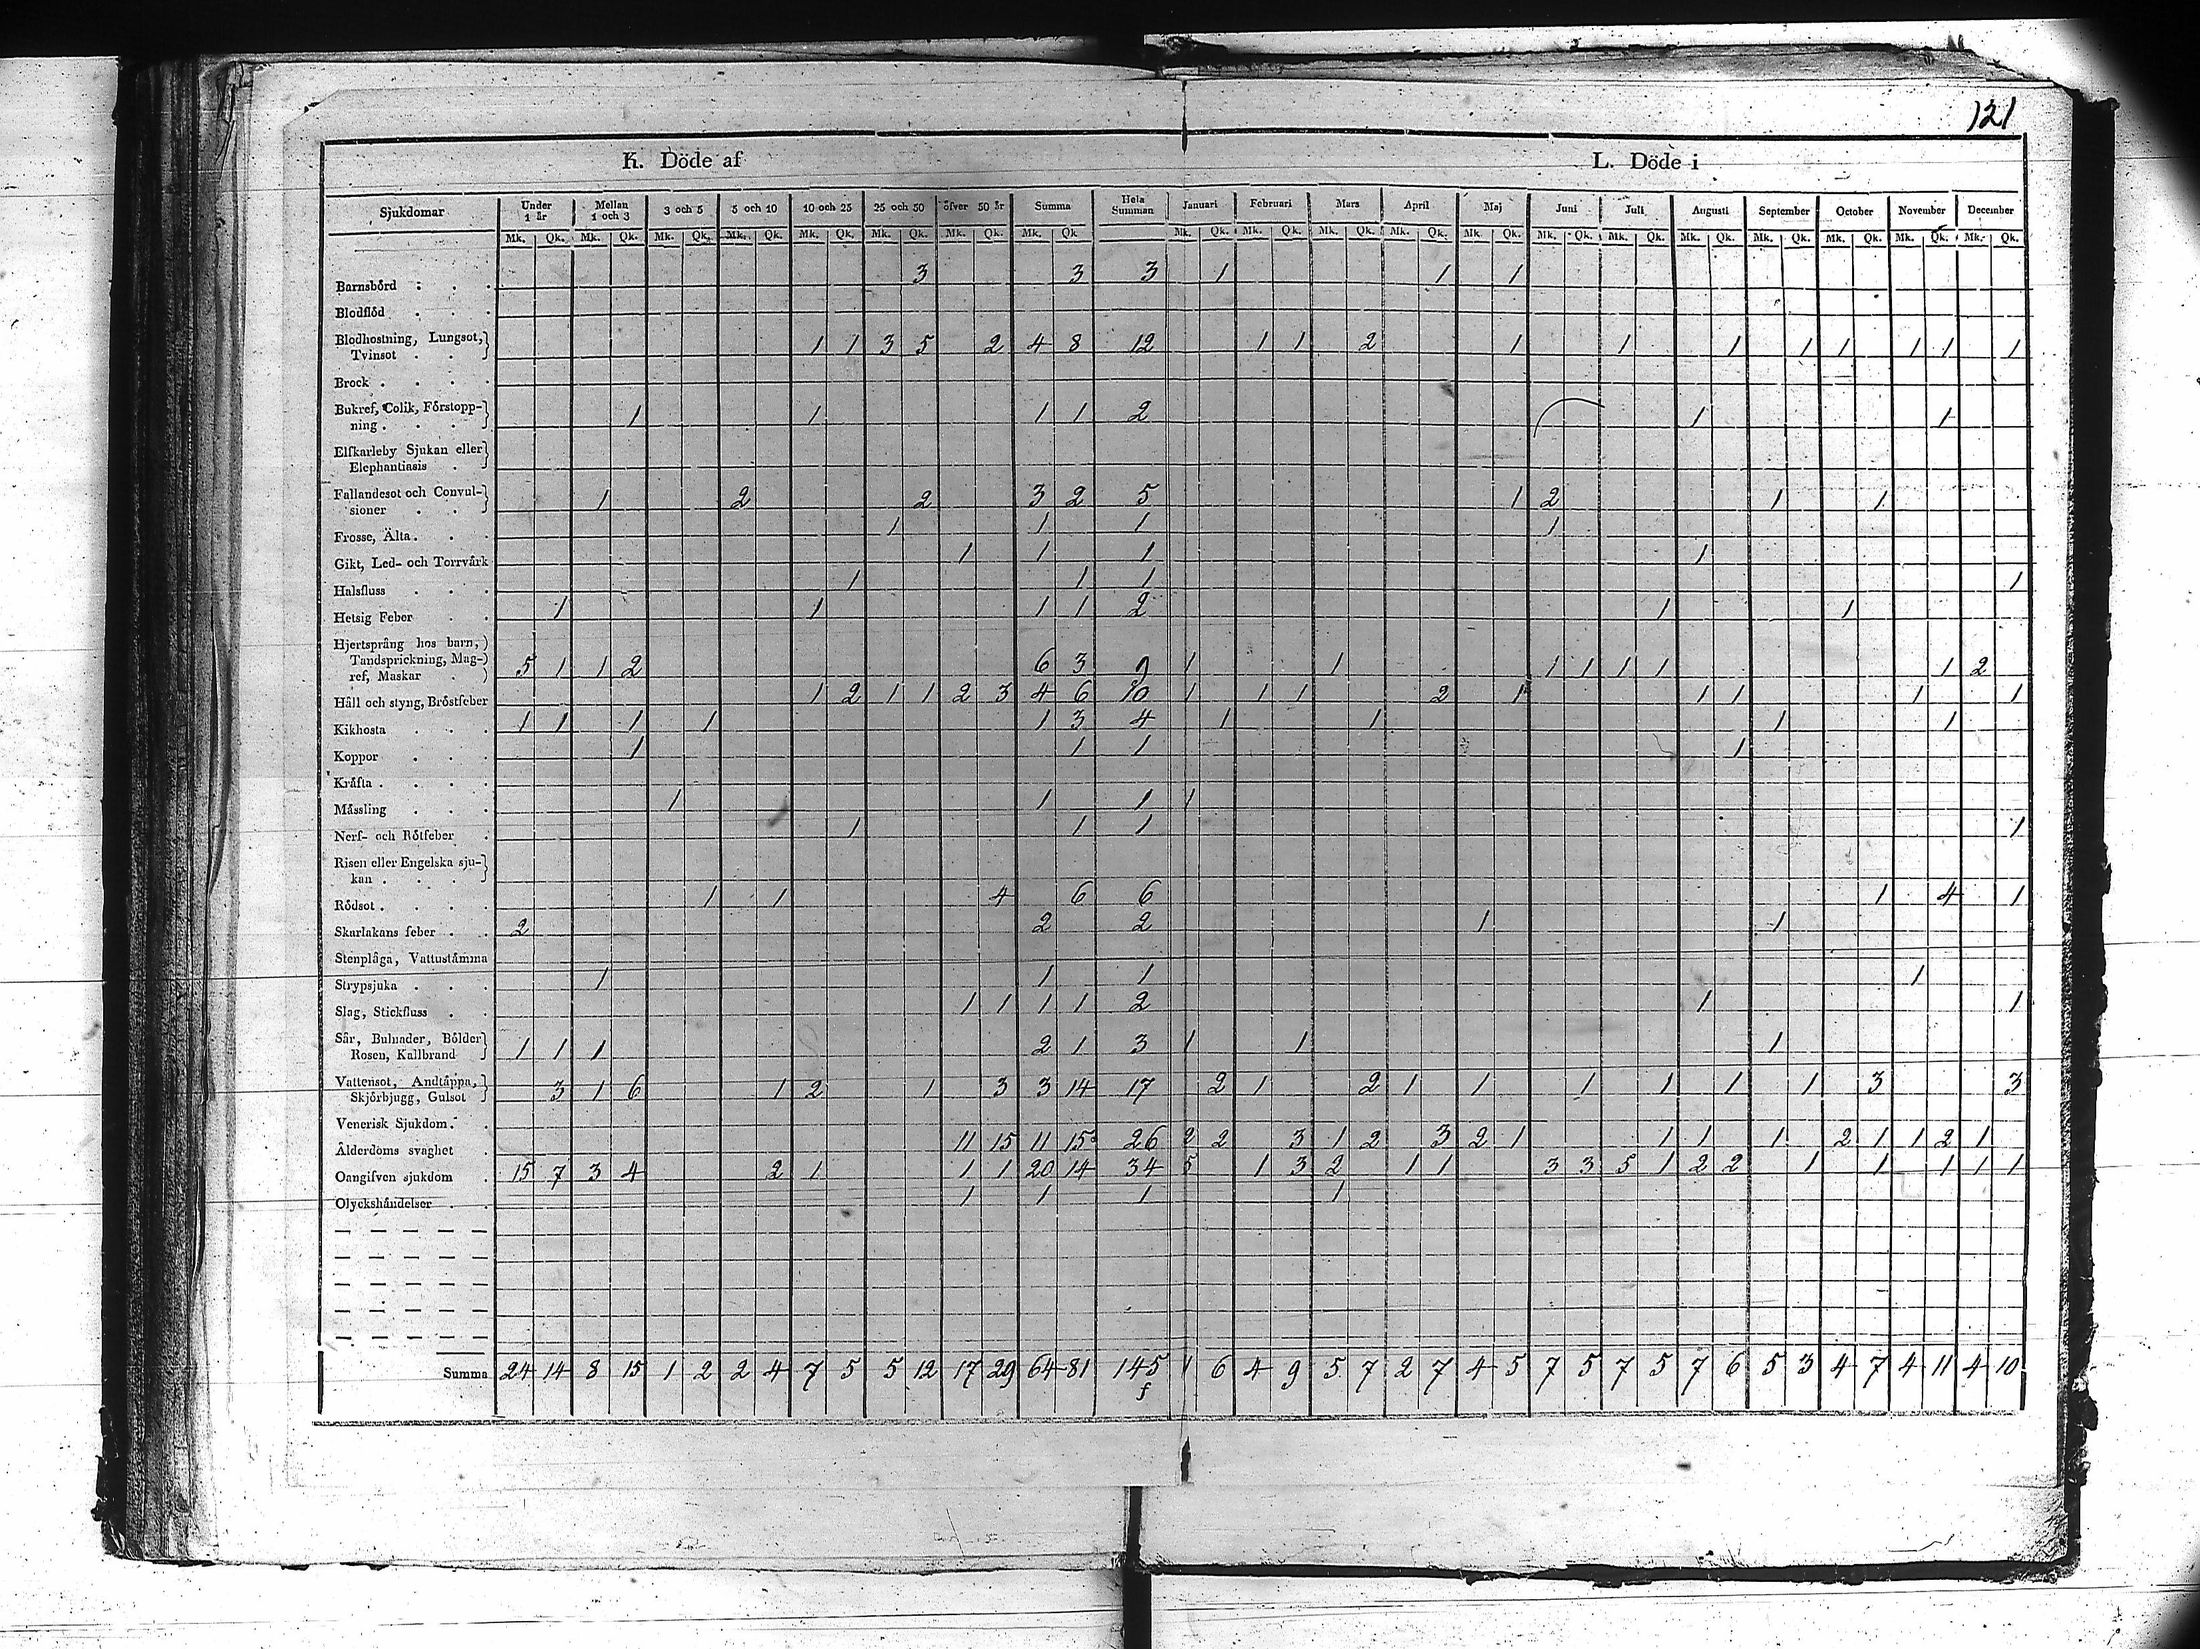 121
K. Döde af L. Döde i
Sjukdomar Under 1 år Mellan 1 och 3 3 och 5 5 och 10 10 och 25 25 och 50 öfver 50 år Summa Hela Summan Januari Februari Mars April Maj Juni Juli Augusti September October November December
Mk. Qk. Mk. Qk. Mk. Qk. Mk. Qk. Mk. Qk. Mk. Qk. Mk. Qk. Mk. Qk Mk. Qk. Mk. Qk. Mk. Qk. Mk. Qk. Mk. Qk. Mk. Qk. Mk. Qk. Mk. Qk. Mk. Qk. Mk. Qk. Mk. Qk. Mk. Qk.
Barnsbörd . . . 3 3 3 1 1 1
Blodflöd . . .
Blodhostning, Lungsot,
Tvinsot . . 1 1 3 5 2 4 8 12 1 1 2 1 1 1 1 1 1 1 1
Brock . . . .
Bukref, Colik, Förstopp-
ning . . . . 1 1 1 1 2 1 1
Elfkarleby Sjukan eller
Elephantiasis .
Fallandesot och Convul-
sioner . . 1 2 2 3 2 5 1 2 1 1
Frosse, Älta . . . 1 1 1 1
Gikt, Led- och Torrvärk 1 1 1 1
Halsfluss . . . 1 1 1 1
Hetsig Feber . . 1 1 1 1 2 1 1
Hjertsprång hos barn,
Tandsprickning, Mag-
ref, Maskar . 5 1 1 2 6 3 9 1 1 1 1 1 1 1 2
Håll och styng, Bröstfeber 1 2 1 1 2 3 4 6 10 1 1 1 2 1 1 1 1 1
Kikhosta . . . 1 1 1 1 1 3 4 1 1 1 1
Koppor . . . 1 1 1 1
Kräfta . . . .
Mässling . . . 1 1 1 1
Nerf- och Rötfeber . 1 1 1 1
Risen eller Engelska sju-
kan . . .
Rödsot . . . . 1 1 4 6 6 1 4 1
Skarlakans feber . . 2 2 2 1 1
Stenplåga, Vattustämma
Strypsjuka . . . 1 1 1 1
Slag, Stickfluss . . 1 1 1 1 2 1 1
Sår, Bulnader, Bölder
Rosen, Kallbrand 1 1 1 2 1 3 1 1 1
Vattensot, Andtäppa,
Skjörbjugg, Gulsot 3 1 6 1 2 1 3 3 14 17 2 1 2 1 1 1 1 1 1 3 3
Venerisk Sjukdom . .
Ålderdoms svaghet . 11 15 11 15 26 2 2 3 1 2 3 2 1 1 1 1 2 1 1 2 1
Oangifven sjukdom . 15 7 3 4 2 1 1 1 20 14 34 5 1 3 2 1 1 3 3 5 1 2 2 1 1 1 1 1
Olyckshändelser . . 1 1 1 1
Summa 24 14 8 15 1 2 2 4 7 5 5 12 17 29 64 81 145 1 6 4 9 5 7 2 7 4 5 7 5 7 5 7 6 5 3 4 7 4 11 4 10